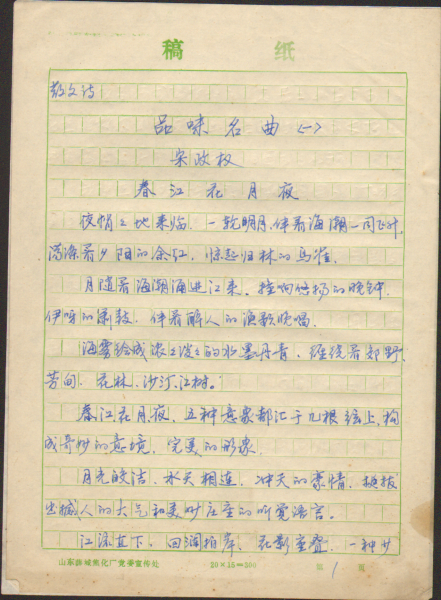 稿 纸
散文诗
品味名曲(一)
宋政权
春江花月夜
夜悄悄地来临。一轮明月,伴着海潮一同飞升,
荡涤着夕阳的余红,惊起归林的鸟雀。
月随着海潮涌进江来,撞响悠扬的晚钟,
伊呀的箫鼓,伴着醉人的渔歌晚唱。
海雾绘成浓浓淡淡的水墨丹青,缠绕着郊野、
芳甸、花林、沙汀、江树。
春、江、花、月、夜,五种意象都汇于几根弦上,构
成奇妙的意境,完美的形象。
月光皎洁,水天相连,冲天的豪情,挑拨
出撼人的大气和美妙庄重的听觉语言。
江流直下,回澜拍岸,花影重叠,一种少
山东薛城焦化厂党委宣传处
20×15=300
第 1 页